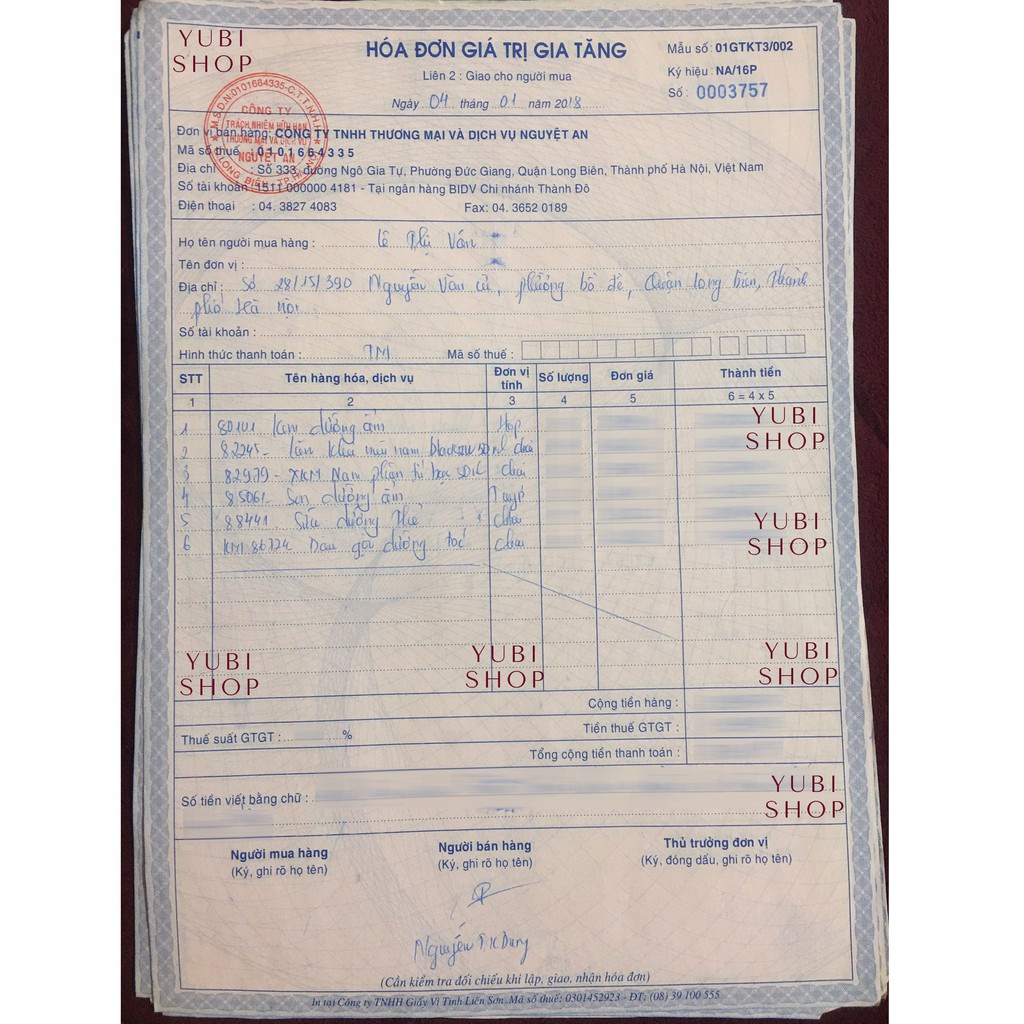 YUBI
SHOP
HÓA ĐƠN GIÁ TRỊ GIA TĂNG
Liên 2 : Giao cho người mua
Ngày 04 tháng 01 năm 2018
Mẫu số: 01GTKT3/002
Ký hiệu : NA/16P
Số : 0003757
M.S.D.N:0101664335-C.T.T.N.H.H
CÔNG TY
TRÁCH NHIỆM HỮU HẠN
THƯƠNG MẠI VÀ DỊCH VỤ
NGUYỆT AN
LONG BIÊN - TP. HÀ NỘI
Đơn vị bán hàng: CÔNG TY TNHH THƯƠNG MẠI VÀ DỊCH VỤ NGUYỆT AN
Mã số thuế : 0101664335
Địa chỉ : Số 333, đường Ngô Gia Tự, Phường Đức Giang, Quận Long Biên, Thành phố Hà Nội, Việt Nam
Số tài khoản: 1511 000000 4181 - Tại ngân hàng BIDV Chi nhánh Thành Đô
Điện thoại : 04. 3827 4083 Fax: 04. 3652 0189
Họ tên người mua hàng : Lê Thị Vân
Tên đơn vị :
Địa chỉ : Số 28/15/390 Nguyễn Văn cừ, phường bồ đề, Quận long biên, Thành
phố Hà nội
Số tài khoản :
Hình thức thanh toán : TM Mã số thuế :
STT Tên hàng hóa, dịch vụ Đơn vị tính Số lượng Đơn giá Thành tiền
1 2 3 4 5 6 = 4 x 5
1 80101 Kem dưỡng ẩm Hộp
2 82245- Lăn khử mùi nam chai
3 82979- Nam chai
4 85061- Son dưỡng ẩm Tuýp
5 88441- Sữa dưỡng thể chai
6 KM 86724 Dau gội dưỡng toc chai
YUBI
SHOP
YUBI
SHOP
YUBI
SHOP
YUBI
SHOP
YUBI
SHOP
Cộng tiền hàng :
Thuế suất GTGT : % Tiền thuế GTGT :
Tổng cộng tiền thanh toán :
Số tiền viết bằng chữ :
YUBI
SHOP
Người mua hàng Người bán hàng Thủ trưởng đơn vị
(Ký, ghi rõ họ tên) (Ký, ghi rõ họ tên) (Ký, đóng dấu, ghi rõ họ tên)
Nguyễn T K Dung
(Cần kiểm tra đối chiếu khi lập, giao, nhận hóa đơn)
In tại Công ty TNHH Giấy Vi Tính Liên Sơn. Mã số thuế: 0301452923 - ĐT: (08) 39 100 555